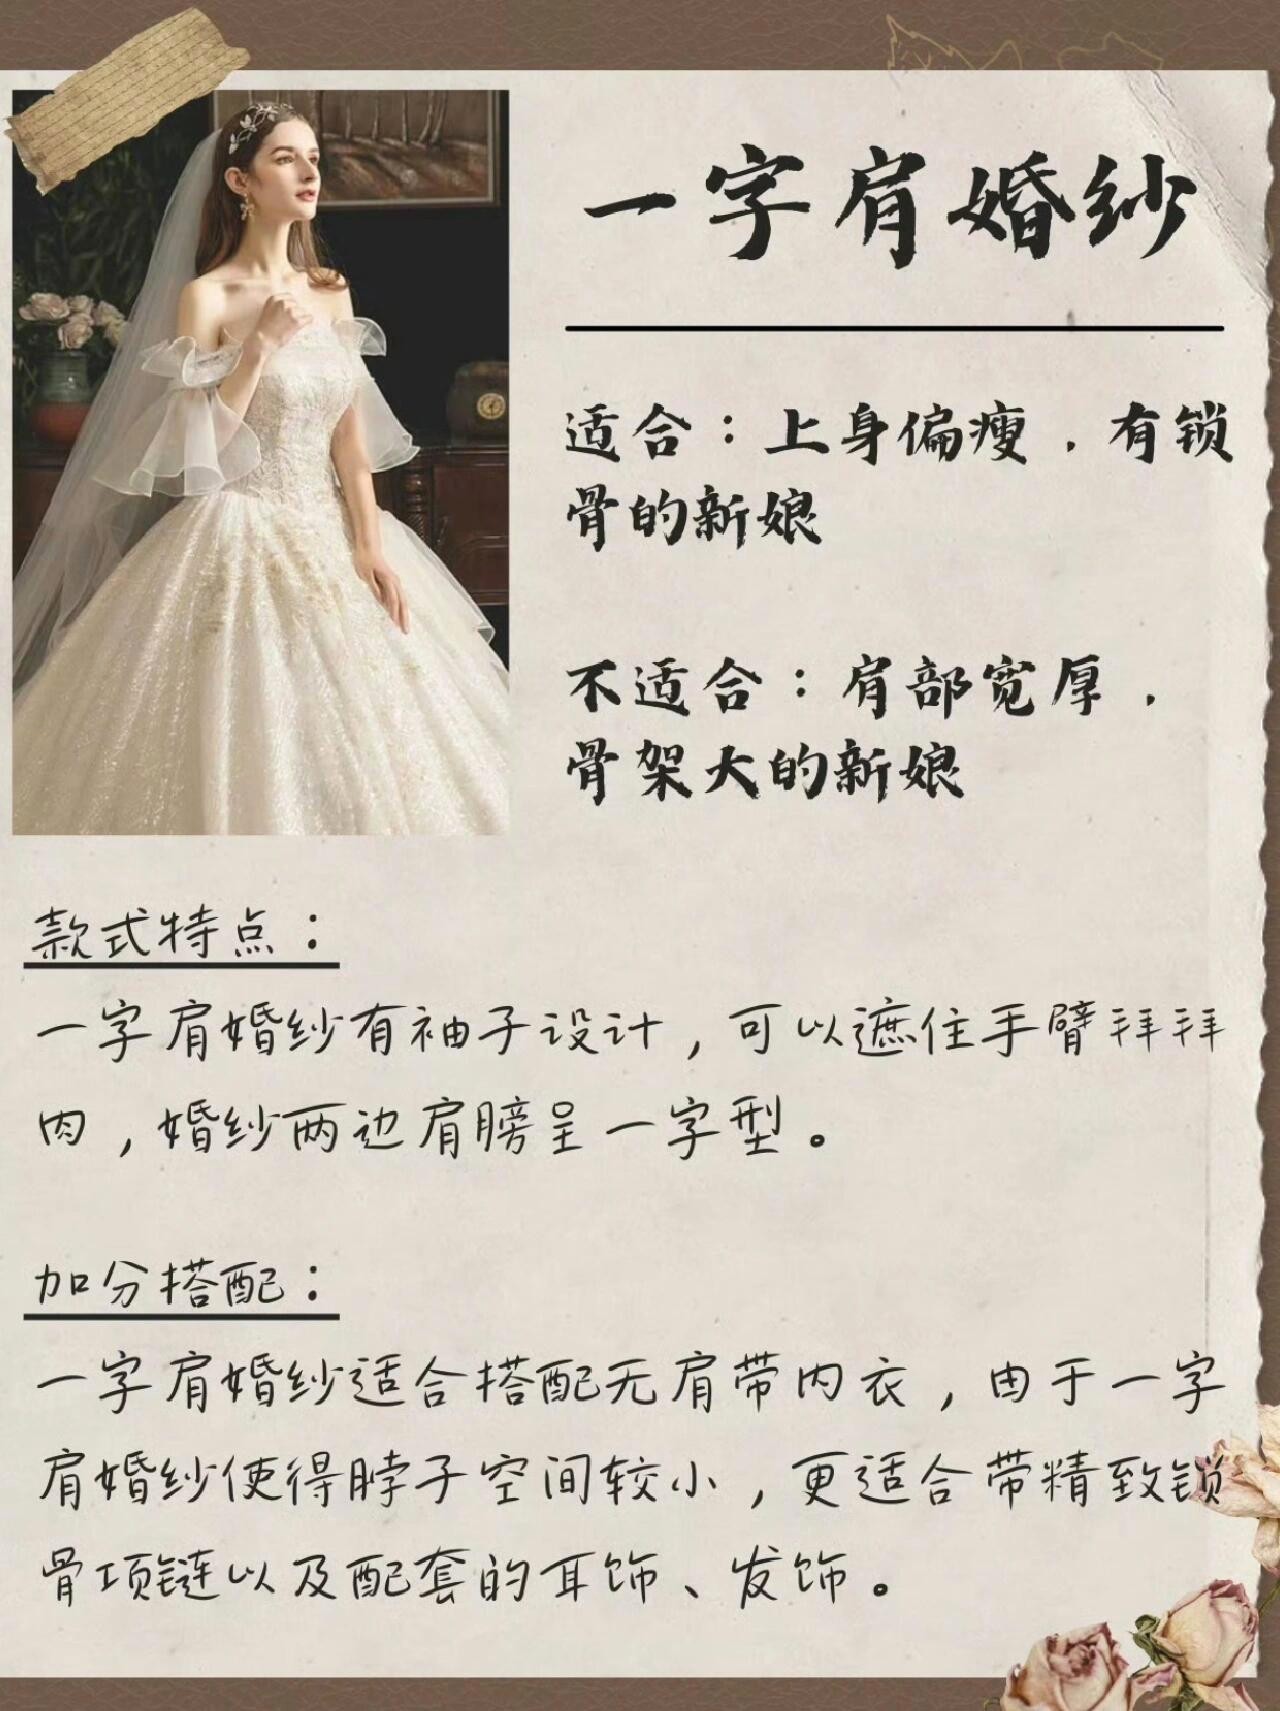 一字肩婚纱
适合：上身偏瘦．有锁
骨的新娘
不适合：肩部宽厚．
骨架大的新娘
款式特点：
一字肩婚纱有袖子设计，可以遮住手臂拜拜
肉，婚纱两边肩膀呈一字型。
加分搭配：
一字肩婚纱适合搭配无肩带内衣，由于一字
肩婚纱使得脖子空间较小，更适合带精致锁
骨项链以及配套的耳饰、发饰。